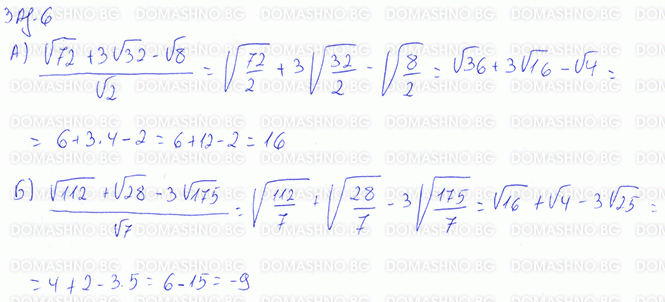 Зад. 6
А) (√72 + 3√32 - √8)/√2 = √(72/2) + 3√(32/2) - √(8/2) = √36 + 3√16 - √4 =
= 6 + 3.4 - 2 = 6 + 12 - 2 = 16
Б) (√112 + √28 - 3√175)/√7 = √(112/7) + √(28/7) - 3√(175/7) = √16 + √4 - 3√25 =
= 4 + 2 - 3.5 = 6 - 15 = -9